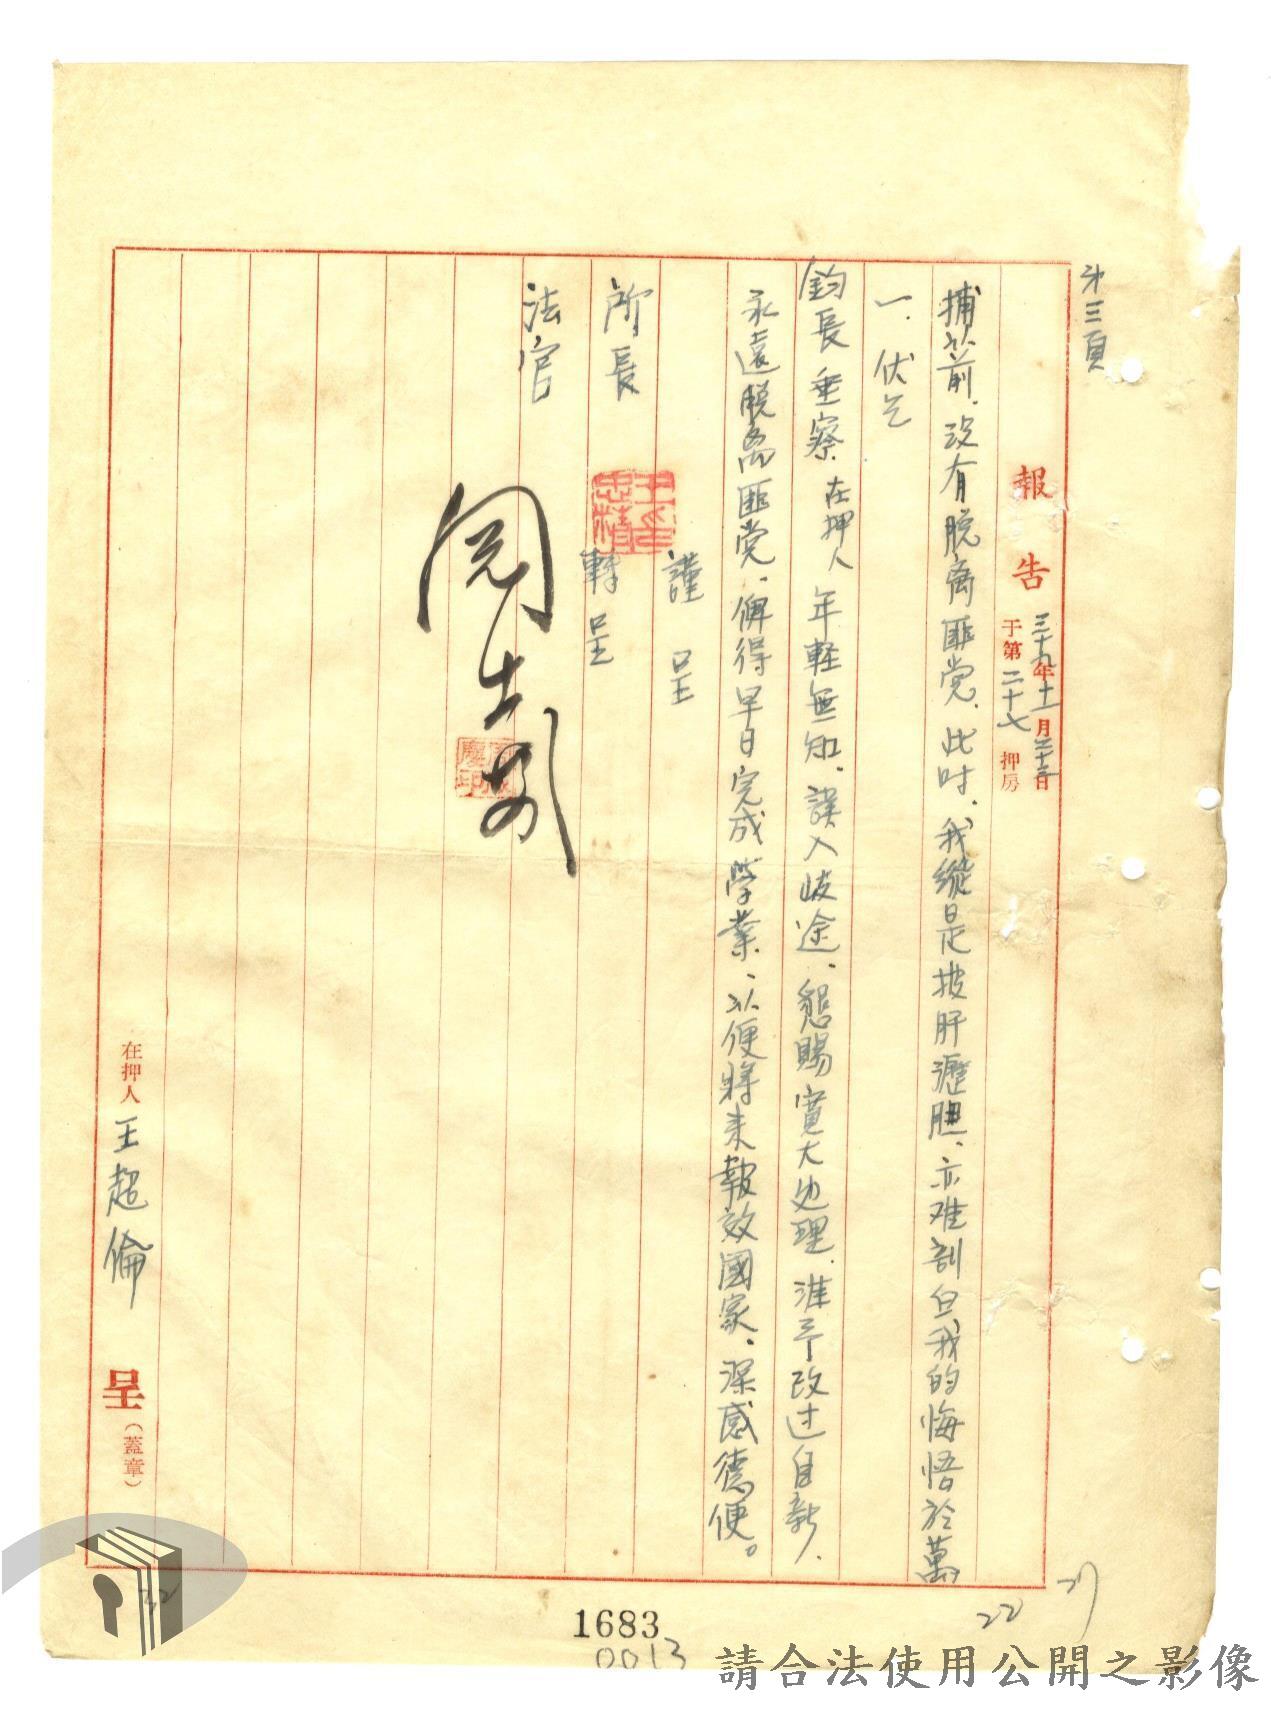 第三頁
報告
三十九年十一月二十三日
于第二十七押房
捕以前．没有脱离匪党．此时．我纵是披肝瀝胆、亦难剖白我的悔悟於萬
一．伏乞
鈞長垂察．在押人年軽無知．誤入歧途、懇賜寬大处理．准予改过自新、
永遠脱离匪党．俾得早日完成学業、以便將来報效國家．深感德便。
謹呈
所長
轉呈
法官
閱
在押人王超倫呈（蓋章）
22
1683
0013
請合法使用公開之影像